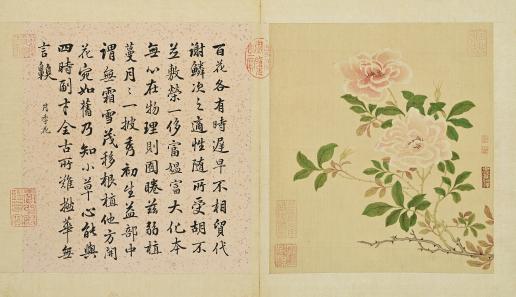 百花各有時遲早不相貿代
謝鱗次之適性隨所受胡不
並敷榮一侈富媼富大化本
無心在物理則囿睠茲弱植
蔓月〻一披秀初生益部中
謂無霜雪茂移根植他方開
花宛如舊乃知小草心能與
四時副才全古所難華無
言
月季花